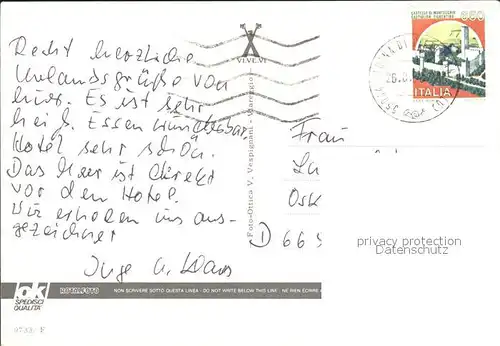 Recht herzliche
Urlaubsgrüße von
hier. Es ist sehr
heiß. Essen wunderbar
Hotel sehr schön.
Das Meer ist direkt
vor dem Hotel.
Wir erholen uns aus-
gezeichnet
Inge u. Klaus
VI.VE.VI
Foto-Ottica V. Vespignani
CASTELLO DI MONTECCHIO
CASTIGLION FIORENTINO
350
ITALIA
Frau
La
Osk
D 66
privacy protection
Datenschutz
ok
SPEDISCI
QUALITA'
ROTALFOTO
NON SCRIVERE SOTTO QUESTA LINEA - DO NOT WRITE BELOW THIS LINE - NE RIEN ÉCRIRE